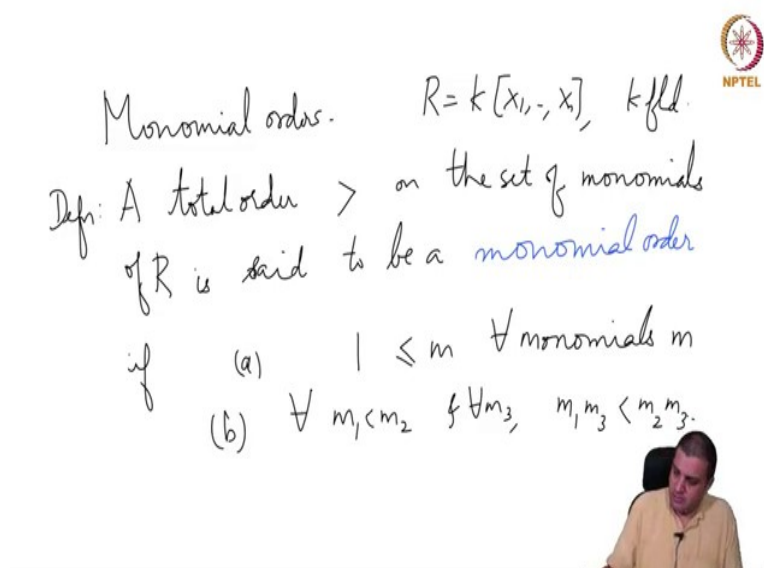 Monomial orders. R = k[x₁,-,xₙ], k fld.
NPTEL
Defn: A total order > on the set of monomials
of R is said to be a monomial order
if (a) 1 ≤ m ∀ monomials m
(b) ∀ m₁<m₂ & ∀m₃, m₁m₃ < m₂m₃.